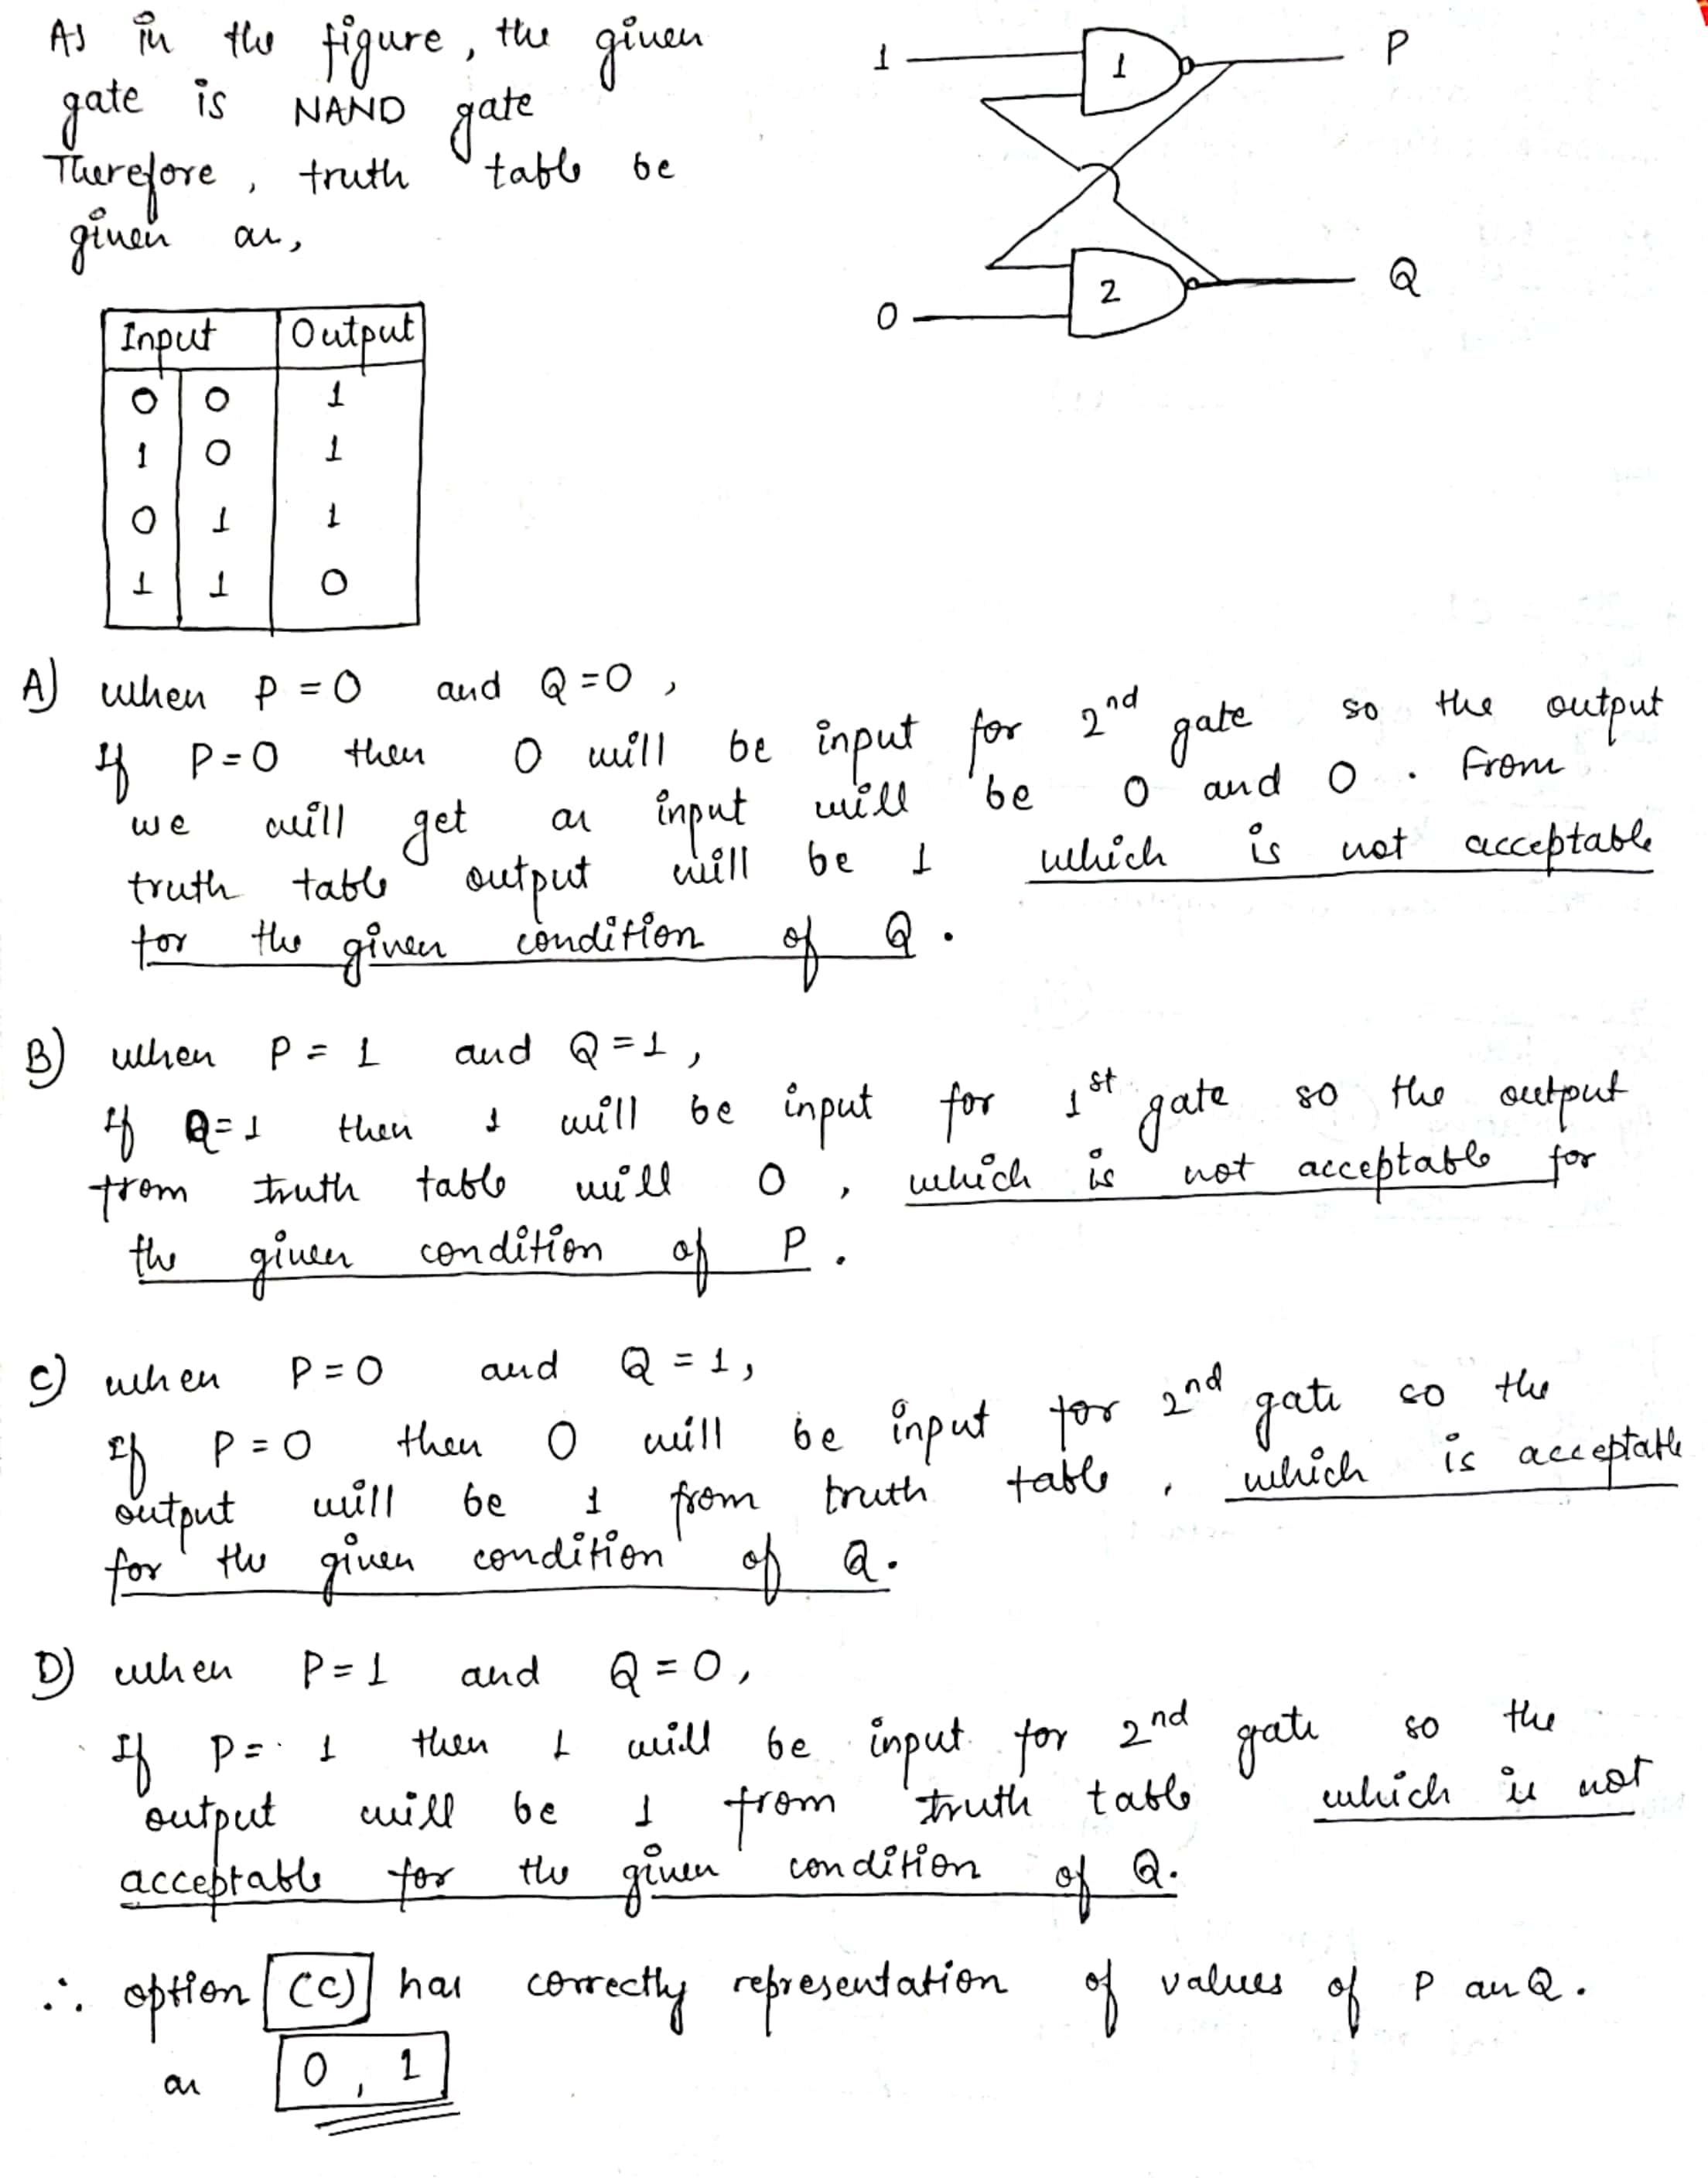 As in the figure, the given
gate is NAND gate
Therefore, truth table be
given as,
1 1 P
2 Q
0
Input Output
0 0 1
1 0 1
0 1 1
1 1 0
A) when P = 0 and Q = 0,
If P = 0 then 0 will be input for 2nd gate so the output
we will get as input will be 0 and 0. From
truth table output will be 1 which is not acceptable
for the given condition of Q.
B) when P = 1 and Q = 1,
If Q = 1 then 1 will be input for 1st gate so the output
from truth table will 0, which is not acceptable for
the given condition of P.
C) when P = 0 and Q = 1,
If P = 0 then 0 will be input for 2nd gate so the
output will be 1 from truth table, which is acceptable
for the given condition of Q.
D) when P = 1 and Q = 0,
If P = 1 then 1 will be input for 2nd gate so the
output will be 1 from truth table which is not
acceptable for the given condition of Q.
∴ option (C) has correctly representation of values of P an Q.
as 0, 1